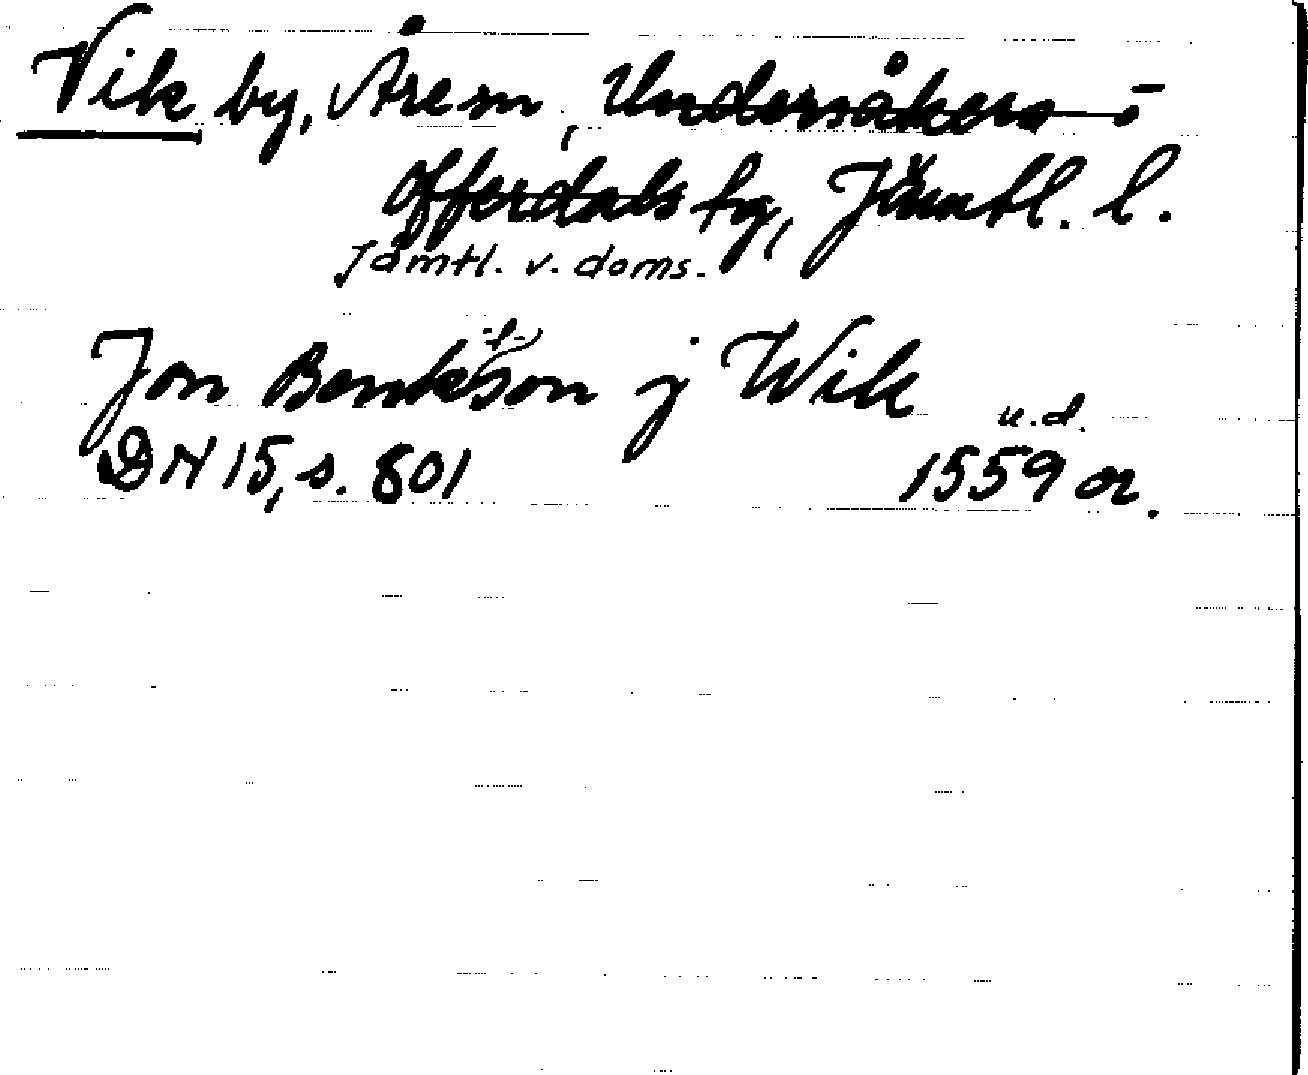 Vik by, Åre sn, Undersåkers o
Offerdals tg, Jämtl. l.
Jämtl. v. doms.
Jon Bentson j Wik
u.d.
DN 15, s. 801 1559 or.